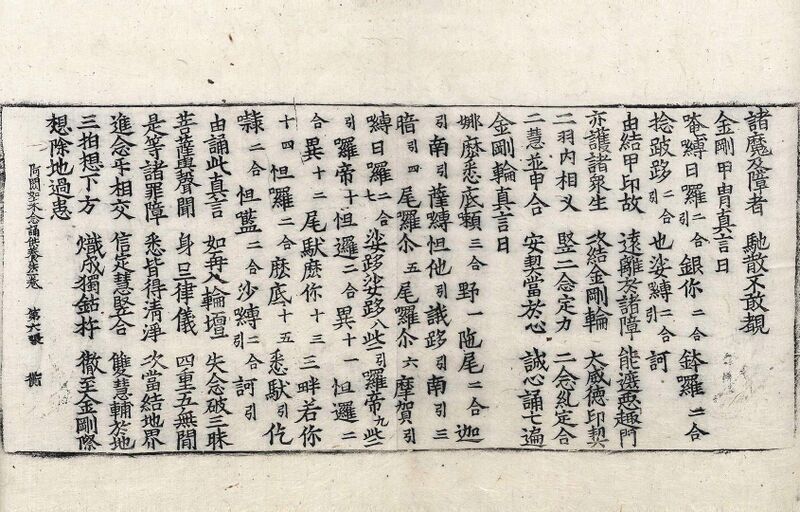 諸魔及障者 馳散不敢覩
金剛甲冑真言曰
唵嚩日羅二合銀你二合鉢囉二合
捻跛跢引二合也娑嚩二合引訶
由結甲印故 遠離於諸障 能遮惡趣門
亦護諸衆生 次結金剛輪 大威德印契
二羽內相叉 竪二念定力 二念糺定合
二慧並申合 安契當於心 誠心誦七遍
金剛輪真言曰
娜麽悉底𠼝三合野一陁尾二合迦
引南引薩嚩怛他引誐跢引南引三
暗引四尾囉介五尾囉介六摩賀引
嚩日囉二合七娑跢娑跢八些引囉帝九些
引囉帝十怛邏二合異十一怛邏二
合異十二尾馱麽你十三三畔若你
十四怛囉二合麽底十五悉馱引仡
隸二合怛藍二合沙嚩二合訶引
由誦此真言 如再入輪壇 失念破三昧
菩薩與聲聞 身口律儀 四重五無間
是等諸罪障 悉皆得淸淨 次當結地界
進念手相交 信定慧竪合 雙慧輔於地
三拍想下方 熾成獨鈷杵 徹至金剛際
想除地過患
阿閦如來念誦供養法一卷 第六張 衡